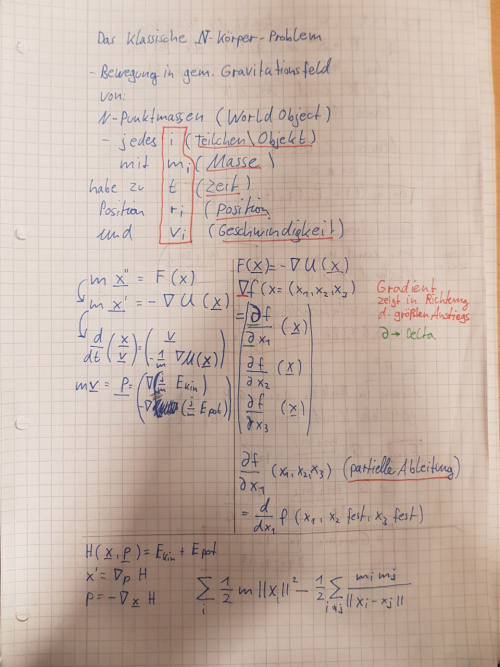 Das klassische N-Körper-Problem
- Bewegung in gem. Gravitationsfeld
von:
N-Punktmassen (World Object)
- jedes i (Teilchen\Objekt)
mit mi (Masse)
habe zu t (Zeit)
Position ri (Position
und vi (Geschwindigkeit)
m x'' = F(x)
m x' = -∇U(x)
d/dt (x v) = (v -1/m ∇U(x))
mv = p = (∇( Ekin) -∇ ( Epot)
F(x) = -∇U(x)
∇f(x = (x1, x2, x3)
= (∂f/∂x1 (x)
∂f/∂x2 (x)
∂f/∂x3 (x))
Gradient
zeigt in Richtung
d. größten Anstiegs
∂ → Delta
∂f/∂x1 (x1, x2, x3) (partielle Ableitung)
= d/dx1 f (x1, x2 fest, x3 fest)
H(x, p) = Ekin + Epot
x' = ∇p H
p = -∇x H
∑i 1/2 m ||xi||² - 1/2 ∑i≠j mi mj / ||xi - xj||